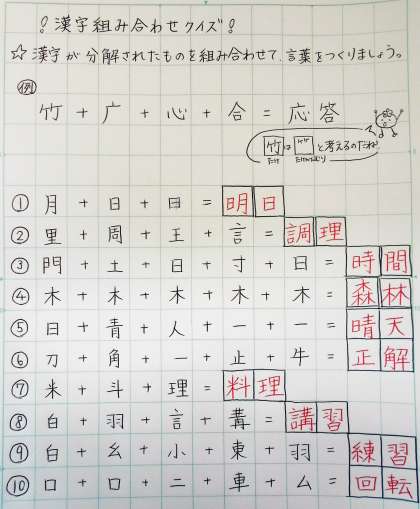 !漢字組み合わせクイズ!
☆漢字が分解されたものを組み合わせて、言葉をつくりましょう。
例
竹 + 广 + 心 + 合 = 応答
竹は⺮と考えるのだね!
たけ たけかんむり
① 月 + 日 + 日 = 明日
② 里 + 周 + 王 + 言 = 調理
③ 門 + 土 + 日 + 寸 + 日 = 時間
④ 木 + 木 + 木 + 木 + 木 = 森林
⑤ 日 + 青 + 人 + 一 + 一 = 晴天
⑥ 刀 + 角 + 一 + 止 + 牛 = 正解
⑦ 米 + 斗 + 理 = 料理
⑧ 白 + 羽 + 言 + 冓 = 講習
⑨ 白 + 幺 + 小 + 東 + 羽 = 練習
⑩ 口 + 口 + 二 + 車 + ム = 回転